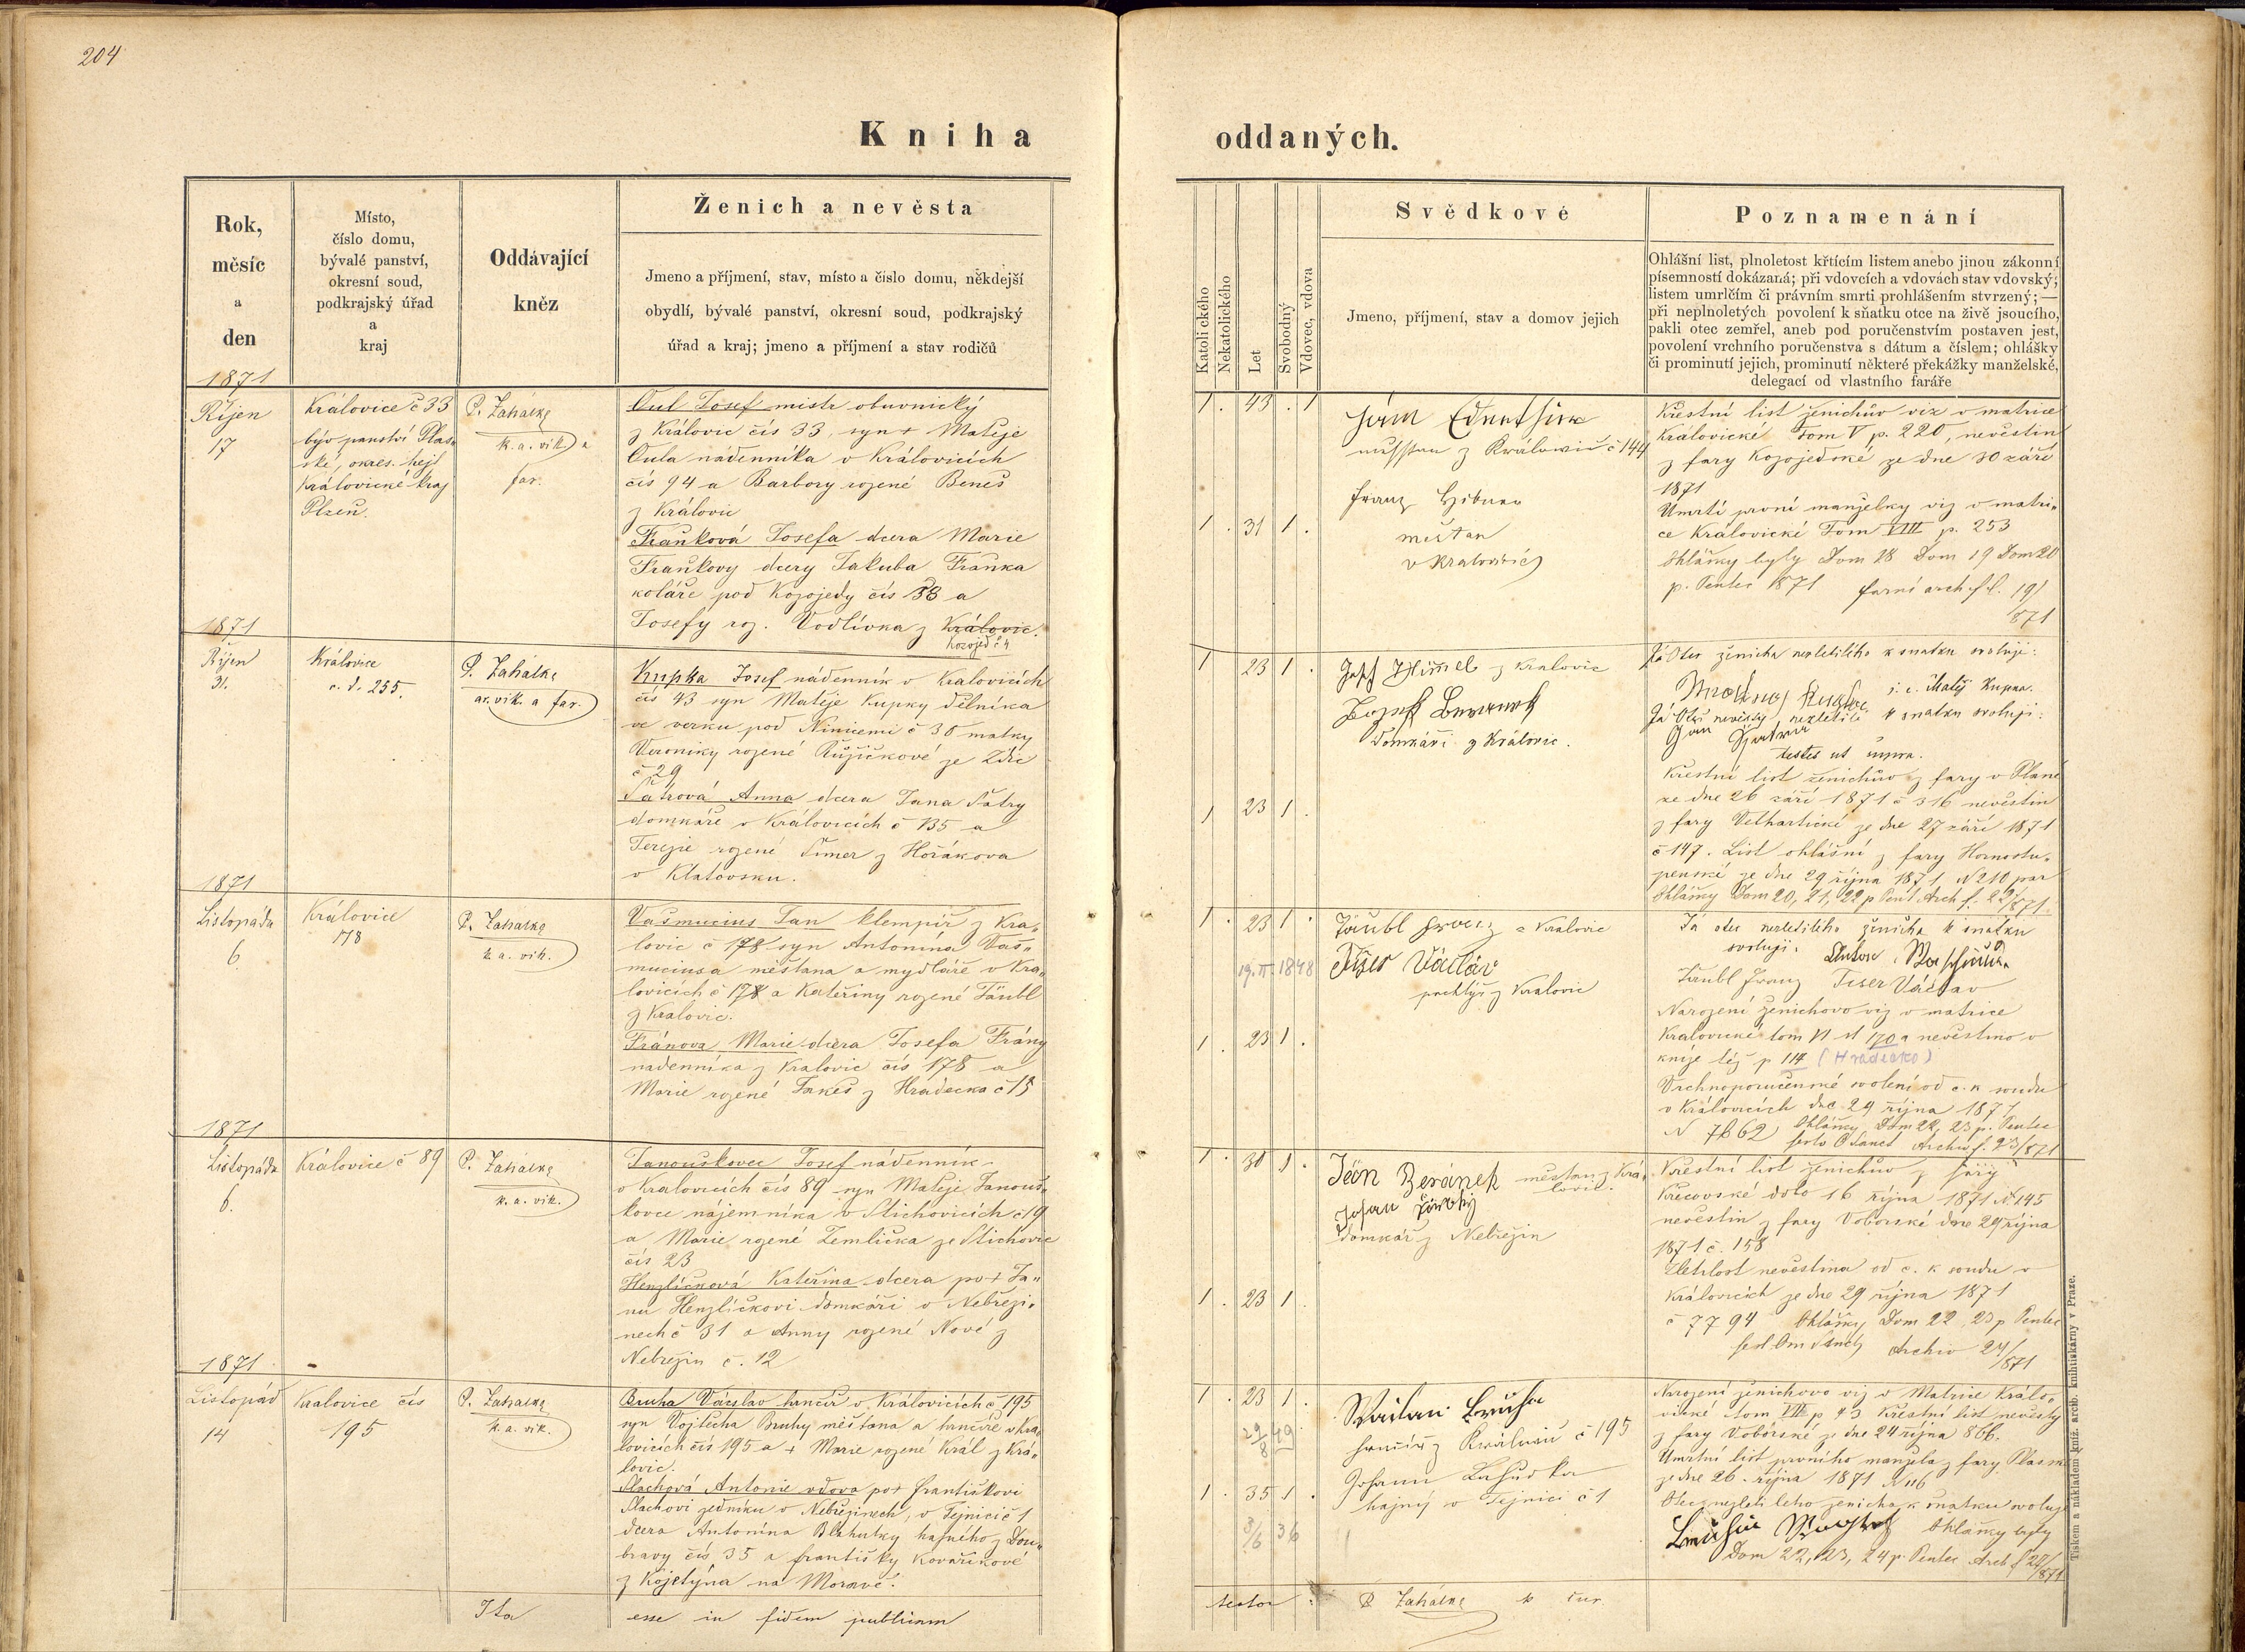 204
Kniha oddaných.
Rok,
měsíc
a
den
Místo,
číslo domu,
bývalé panství,
okresní soud,
podkrajský úřad
a
kraj
Oddávající
kněz
Ženich a nevěsta
Jmeno a příjmení, stav, místo a číslo domu, někdejší
obydlí, bývalé panství, okresní soud, podkrajský
úřad a kraj; jmeno a příjmení a stav rodičů
Katolického
Nekatolického
Let
Svobodný
Vdovec, vdova
Svědkové
Jmeno, příjmení, stav a domov jejich
Poznamenání
Ohlášní list, plnoletost křtícím listem anebo jinou zákonní
písemností dokázaná; při vdovcích a vdovách stav vdovský;
listem umrlčím či právním smrti prohlášením stvrzený;—
při neplnoletých povolení k sňatku otce na živě jsoucího,
pakli otec zemřel, aneb pod poručenstvím postaven jest,
povolení vrchního poručenstva s dátum a číslem; ohlášky
či prominutí jejich, prominutí některé překážky manželské,
delegací od vlastního faráře
1871
Říjen
17
Královice č 33
býv panství Plas„
ské, okres. hejt
Královické kraj
Plzeň.
P. Zahálka
k. a. vik. a
far.
Oul Josef mistr obuvnický
z Královic čís 33, syn + Matěje
Oula nádenníka v Královicích
čís 94 a Barbory rozené Beneš
z Královic
Franková Josefa dcera Marie
Frankovy dcery Jakuba Franka
koláře pod Kozojedy čís 33 a
Josefy roz. Vodlívka z Královic.
Kozojed č 4
1 . 43 . 1
1 . 31 1 .
z Královic č 144
Franz
měštan
v Kralovicích
Křestní list ženichův viz v matrice
Královické Tom V p. 220, nevěstin
z fary Kozojedské ze dne 30 září
1871
Umrtí první manželky viz v matri„
ce Královické Tom VIII p. 253
Ohlášky byly Dom 18 Dom 19 Dom 20
p. Pentec 1871 farní arch. f. č. 19/
871
1871
Říjen
31.
Královice
č. d. 255.
P. Zahálka
ar. vik. a far.
Kupka Josef nádenník v Kralovicích
čís 43 syn Matěje Kupky dělníka
ve verku pod Nimicemi č 38 matky
Veroniky rozené Růžičkové ze Zdic
č 29
Šatrová Anna dcera Jana Šatry
domkáře v Královicích č 135 a
Terezie rozené Šimer z Hořákova
v Klatovsku.
1 23 1 .
1 23 1 .
Himmel z Kralovic
domkáři z Královic.
Já Otec ženicha nezletilého k snatku svoluji:
j. e. Matěj Kupka.
Já Otec nevěsty nezletilé k snatku svoluji:
Jan
testes ut supra.
Křestní list ženichův z fary v Plané
ze dne 26 září 1871 č 316 nevěstin
z fary Velhartické ze dne 27 září 1871
č 147. List ohlášní z fary Hornostu„
penské ze dne 29 října 1871 N 210 par
Ohlášky Dom 20, 21, 22 p Pent. Arch f. 22/871.
1871
Listopádu
6
Královice
178
P. Zahálka
k a. vik.
Vašmucius Jan klempíř z Kra„
lovic č 178 syn Antonína Vaš„
muciusa měštana a mydláře v Kra„
lovicích č 178 a Kateřiny rozené Täubl
z Kralovic.
Fránova Marie dcera Josefa Frány
nadenníka z Kralovic čís 178 a
Marie rozené Jakeš z Hradecka č 15
1 . 23 1 .
19. II. 1848
1 . 23 1 .
Täubl Franz z Kralovic
Tiser Václav
pachtýř z Kralovic
Já otec nezletilého ženicha k snatku
svoluji. Anton
Täubl Franz Tiser Václav
Narození ženichovo viz v matrice
Kralovické tom VI N 170 a nevěstino v
knize též p 114 (Hradecko)
Vrchnoporučenské svolení od c. k soudu
v Královicích dne 29 října 1871
N 7662 Ohlášky Dom 22, 23 p. Pentec
festo O Sanct Archiv f. 23/871
1871
Listopádu
6.
Královice č 89
P. Zahálka
k. a. vik.
Janouškovec Josef nádenník
v Kralovicích čís 89 syn Matěje Janouš„
kovce nájemníka v Michovicích č 19
a Marie rozené Zemlička ze Michovic
čís 23
Henzlíčková Kateřina dcera po + Ja„
nu Henzlíčkovi domkáři v Nebřezi„
nech č 31 a Anny rozené Nové z
Nebřezin č. 12
1 . 31 1 .
1 . 23 1 .
Jan Beránek měštan z Krá„
lovic.
Johan
domkář z Nebřezin
Křestní list ženichův z fary
Krecovské ddto 16 října 1871 N 145
nevěstin z fary Voborské dne 29 října
1871 č. 158
Zletilost nevěstina od c. k soudu v
Královicích ze dne 29 října 1871
č 7794 Ohlášky Dom 22, 23 p Pentec
fest Om Sanct Archiv 24/
871
1871
Listopád
14
Kralovice čís
195
P. Zahálka
k. a. vik.
Bruha Václav hrnčíř v Královicích č 195
syn Vojtěcha Bruhy měštana a hrnčíře v Kra„
lovicích čís 195 a + Marie rozené Král z Krá„
lovic.
Plachová Antonie vdova po + Františkovi
Plachovi zedníku v Nebřezinech, v Tejnici č 1
dcera Antonína Blahutky hajného z Dou„
bravy čís 35 a Františky Kovaříkové
z Kojetýna na Moravě.
1 . 23 1 .
29/8 49
1 . 35 1 .
8/6 36
Bruha
hrnčíř z Královic č 195
Johann
hajný v Tejnici č 1
Narození ženichovo viz v Matrice Králo„
vické tom VIII p 43 Křestní list nevěsty
z fary Voborské ze dne 24 října 866.
Umrtní list prvního manžela z fary Plasské
ze dne 26. října 1871 N 116
Otec nezletilého ženicha k snatku svoluje
Ohlášky byly
Dom 22, 23, 24 p. Pentec Arch f 24/
871
Ita esse in fidem publicam
testor : P. Zahálka k cur.
Tiskem a nákladem kníž. arcib. knihtiskárny v Praze.